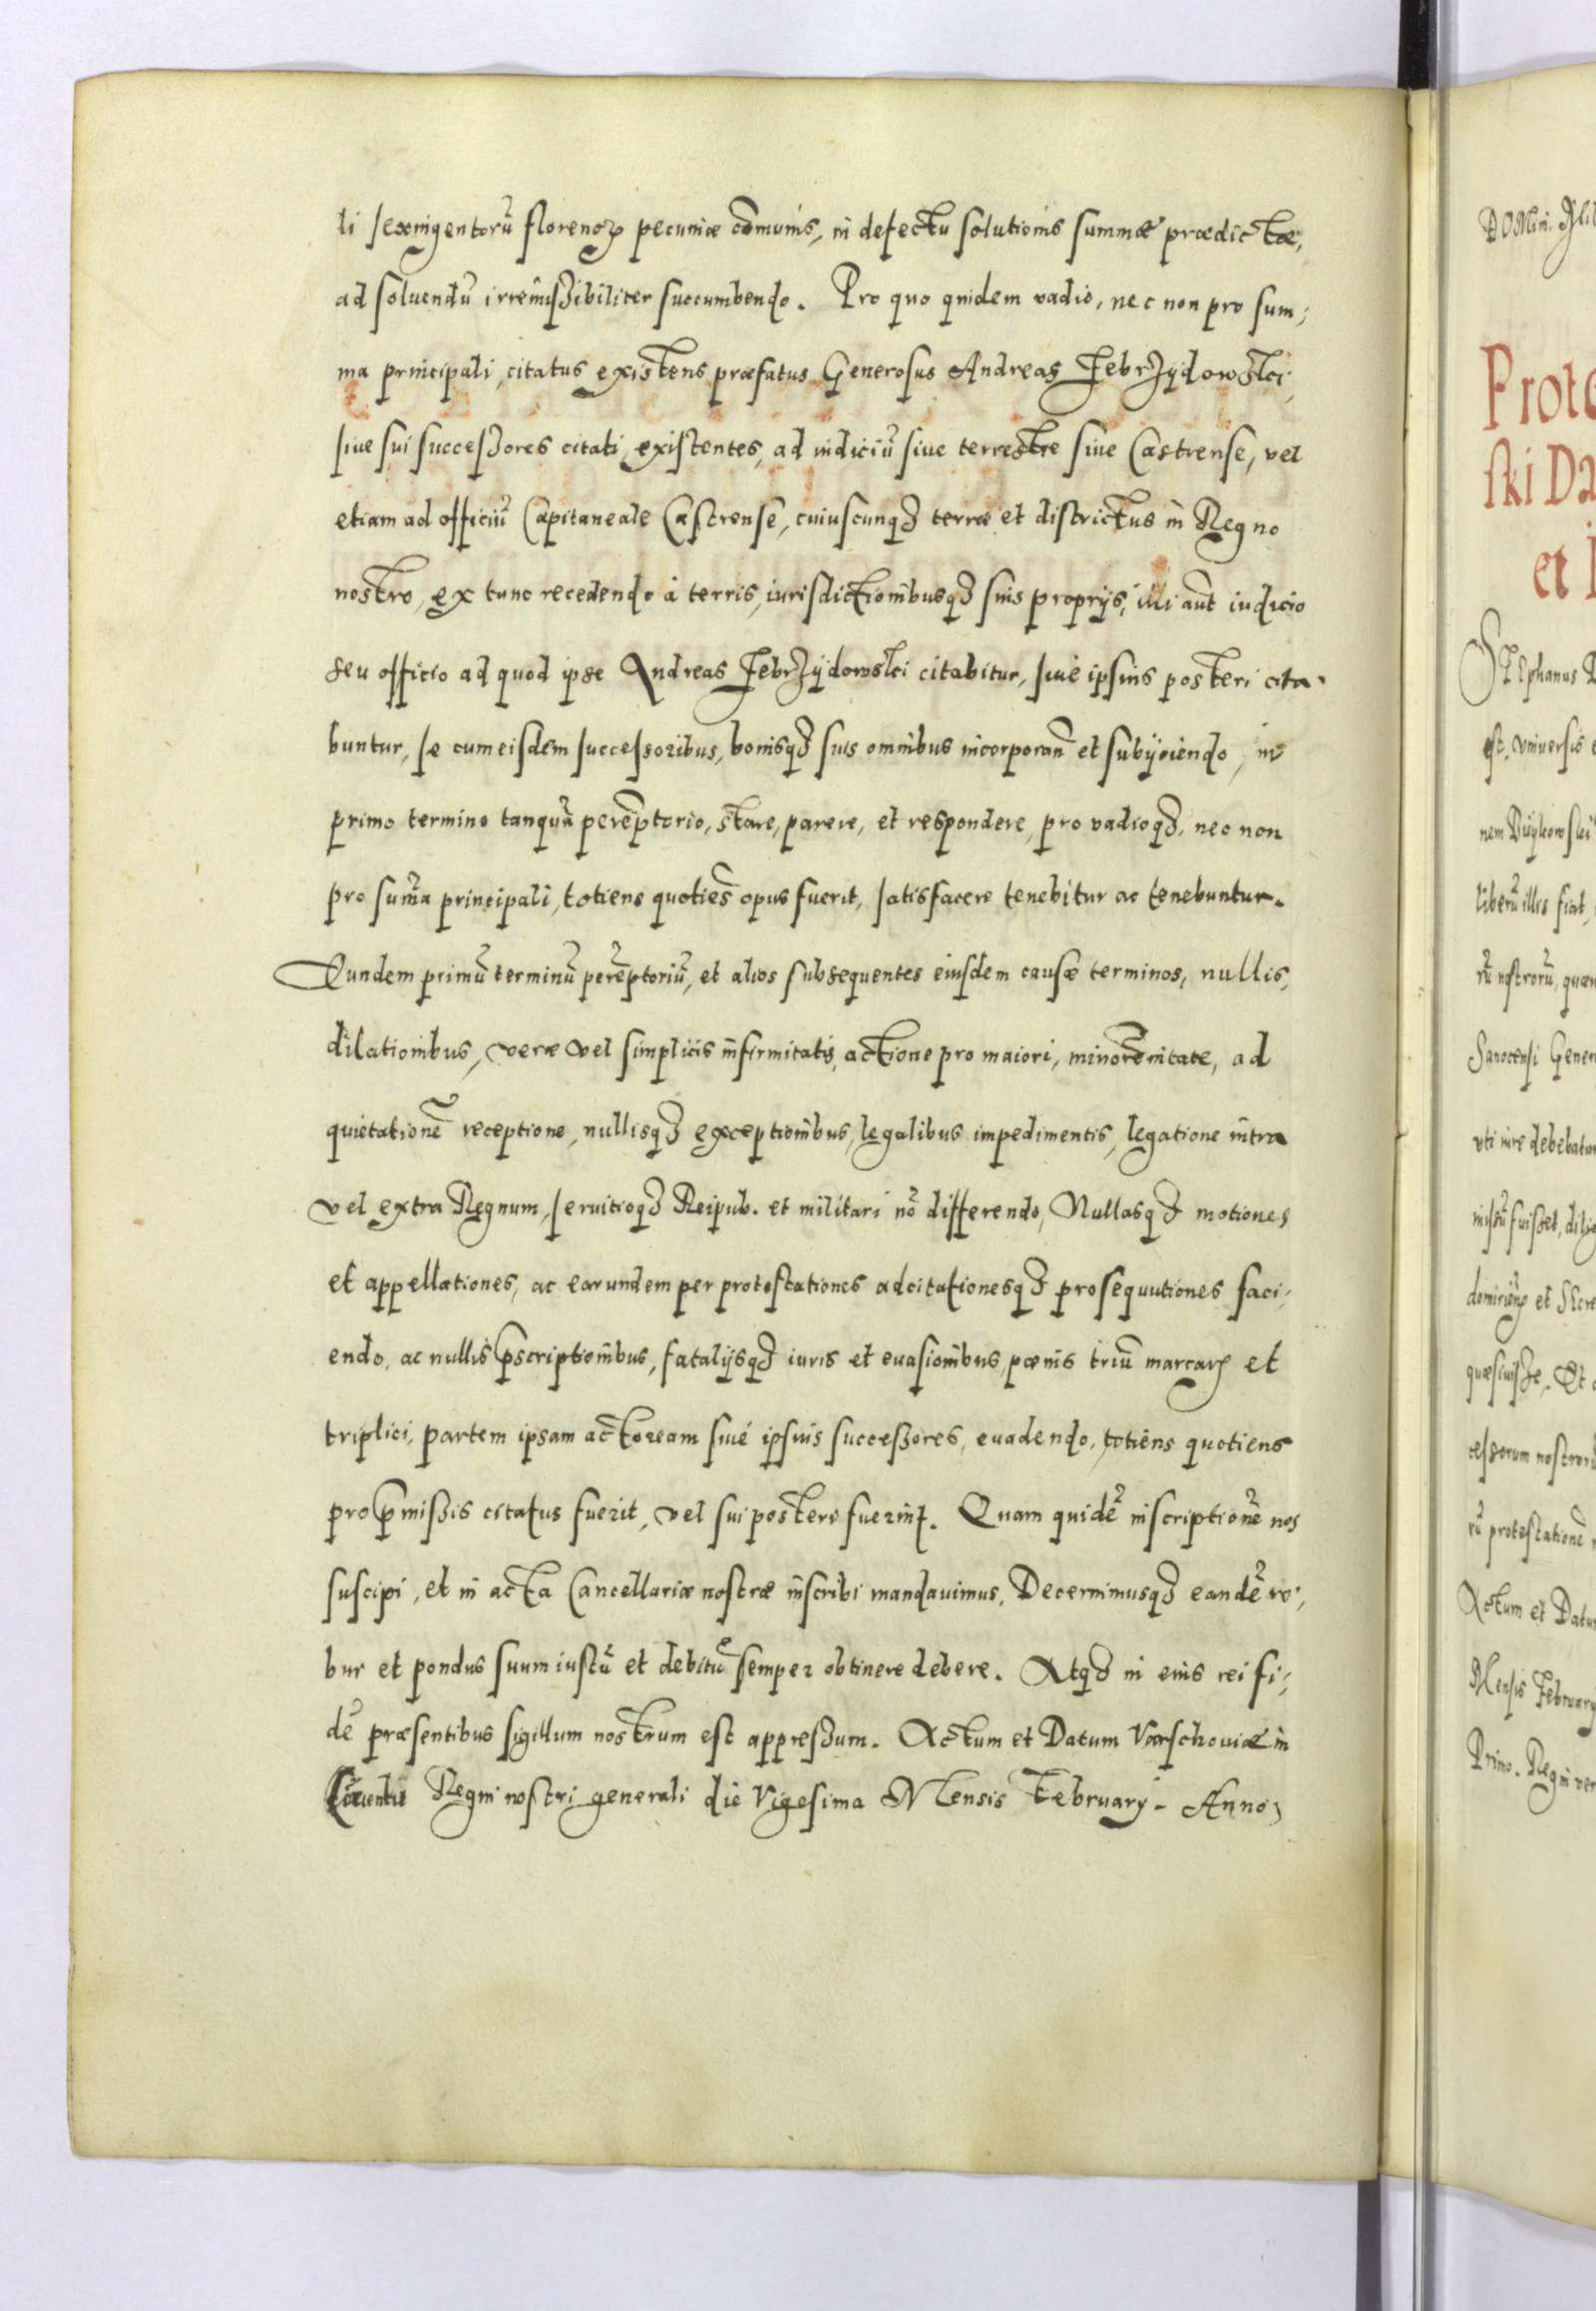 li sexingentorũ florenoꝝ pecuniæ cõmunis, in defectu solutionis summæ prædictæ,
ad soluendũ irremißibiliter succumbendo. Pro quo quidem vadio, nec non pro sum,
ma principali, citatus existens præfatus Generosus Andreas Febrzÿdowski,
siue sui succeßores citati existentes, ad iudiciũ siue terrestre siue Castrense, vel
etiam ad officiũ Capitaneale Castrense, cuiuscunqꝫ terræ et districtus in Regno
nostro, ex tunc recedendo à terris, iurisdictionibusqꝫ suis proprijs, illi aũt iudicio
seu officio ad quod ipse Andreas Febrzÿdowski citabitur, siue ipsius posteri cita,
buntur, se cum eisdem successoribus, bonisqꝫ suis omnibus incorporan̄ et subijciendo, in
primo termino tanquã perẽptorio, stare, parere, et respondere, pro vadioqꝫ, nec non
pro sum̃a principali, totiens quoties opus fuerit, satisfacere tenebitur ac tenebuntur.
Eundem primũ terminũ perẽptoriũ, et alios subsequentes eiusdem causæ terminos, nullis,
dilationibus, veræ vel simplicis infirmitatis, actione pro maiori, minorẽnitate, ad
quietationẽ receptione, nullisqꝫ exceptionibus, legalibus impedimentis, legatione intra
vel extra Regnum, seruitioqꝫ Reipub. et militari nõ differendo, Nullasqꝫ motiones
et appellationes, ac earundem per protestationes adcitationesqꝫ prosequutiones faci,
endo, ac nullis p̃scriptionibus, fatalijsqꝫ iuris et euasionibus pœnis triũ marcarꝝ et
triplici, partem ipsam actoream siue ipsius succeßores, euadendo, totiens quotiens
pro p̃mißis citatus fuerit, vel sui posteri fuerint. Quam quidẽ inscriptionẽ nos
suscipi, et in acta Cancellariæ nostræ inscribi mandauimus, Decernimusqꝫ eandẽ ro,
bur et pondus suum iustũ et debitũ semper obtinere debere. Atqꝫ in eius rei fi,
dẽ præsentibus sigillum nostrum est appreßum. Actum et Datum Varschouiæ in
Regni nostri generali die Vigesima Mensis February. Anno,
DOMini.
Prot
ski Da
et
STEphanus
est, Vniuersis
liberũ illis fiat,
rũ nostrorũ, quæ
Sanocensi Gener
vti iure debebatur
rũ protestationẽ
Actum et Datu
Mensis February
Primo. Regni ver